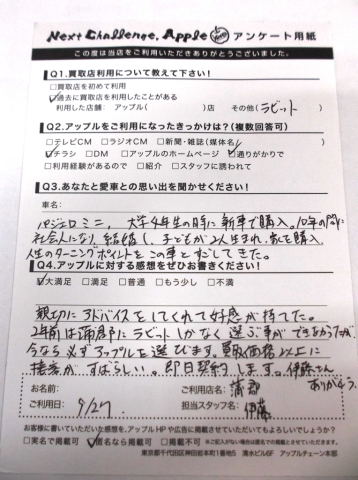 Next Challenge, Apple アンケート用紙
この度は当店をご利用いただきありがとうございました。
Q1.買取店利用について教えて下さい！
□買取店を初めて利用
☑過去に買取店を利用したことがある
利用した店舗： アップル( )店 その他( ラビット )
Q2.アップルをご利用になったきっかけは？(複数回答可)
□テレビCM □ラジオCM □新聞・雑誌(媒体名 )
☑チラシ □DM □アップルのホームページ ☑通りがかりで
□利用経験があるので □紹介 □スタッフに誘われて
Q3.あなたと愛車との思い出を聞かせください！
車名：
パジェロミニ, 大学4年生の時に新車で購入。10年の間に
社会人になり、結婚し、子どもが2人生まれ、家を購入
人生のターニングポイントをこの車とすごしてきた。
Q4.アップルに対する感想をぜひお書きください！
☑大満足 □満足 □普通 □もう少し □不満
親切にアドバイスをしてくれて好感が持てた。
2年前は蒲郡にラビットしかなく選ぶ事ができなかったが、
今なら必ずアップルを選びます。買取価格以上に
接客がすばらしい。即日契約します。伊藤さん
ありがとう。
お名前： ご利用店名： 蒲郡
ご利用日： 9/27. 担当スタッフ名： 伊藤
お客様に書いていただいた感想を、アップルHPや広告に掲載させていただいてもよろしいでしょうか？
□実名で掲載可 ☑匿名なら掲載可 □掲載不可 ※ご記入がない場合は匿名での掲載とさせていただきます。
東京都千代田区神田岩本町1番地5 清水ビル6F アップルチェーン本部